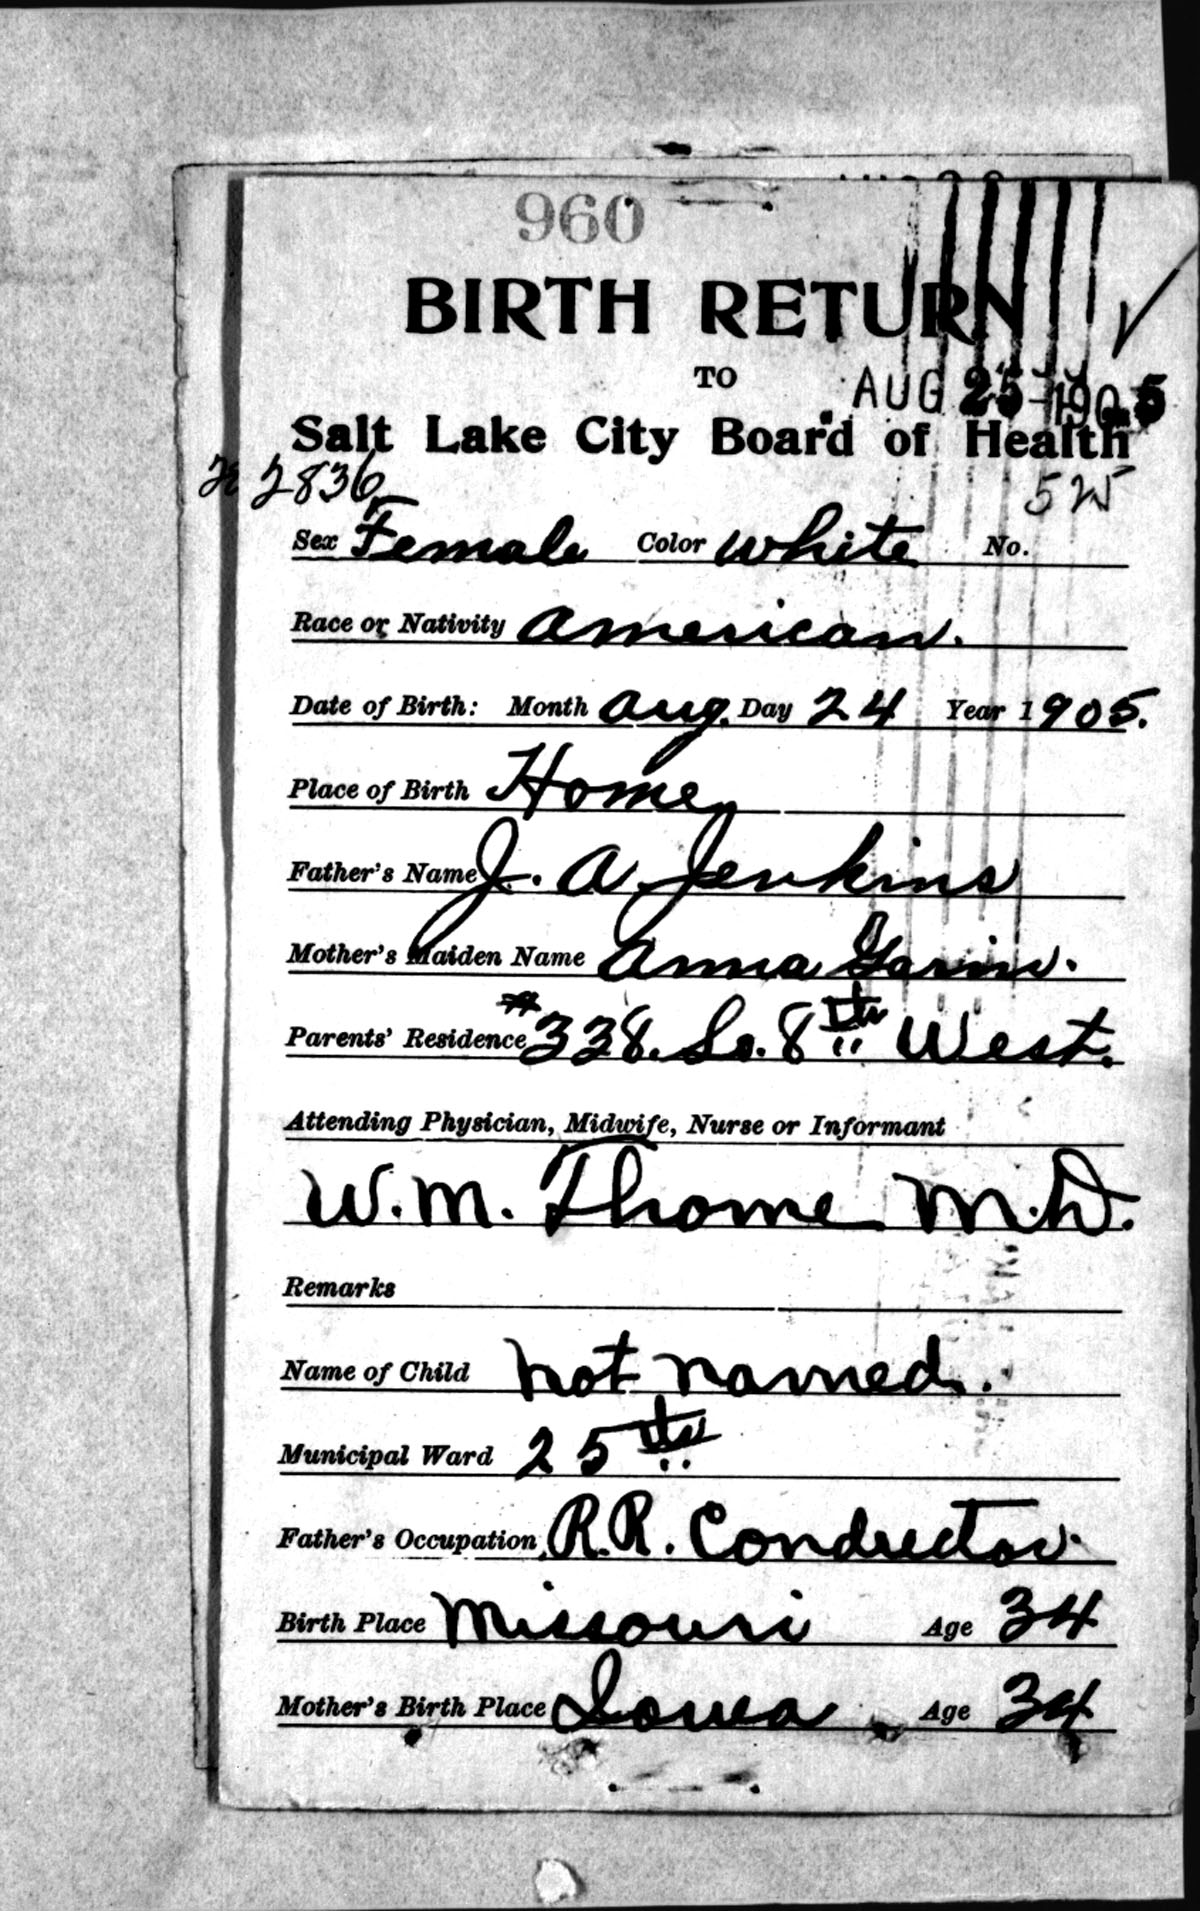 960
BIRTH RETURN
TO
AUG 25 1905
Salt Lake City Board of Health
2836
5 W
Sex Female Color White No.
Race or Nativity American.
Date of Birth: Month Aug. Day 24 Year 1905.
Place of Birth Home
Father's Name J. A. Jenkins
Mother's Maiden Name Anna
Parents' Residence #338. So. 8th West.
Attending Physician, Midwife, Nurse or Informant
W. M. Thome M.D.
Remarks
Name of Child not named.
Municipal Ward 25th
Father's Occupation R.R. Conductor.
Birth Place Missouri Age 34
Mother's Birth Place Iowa Age 34